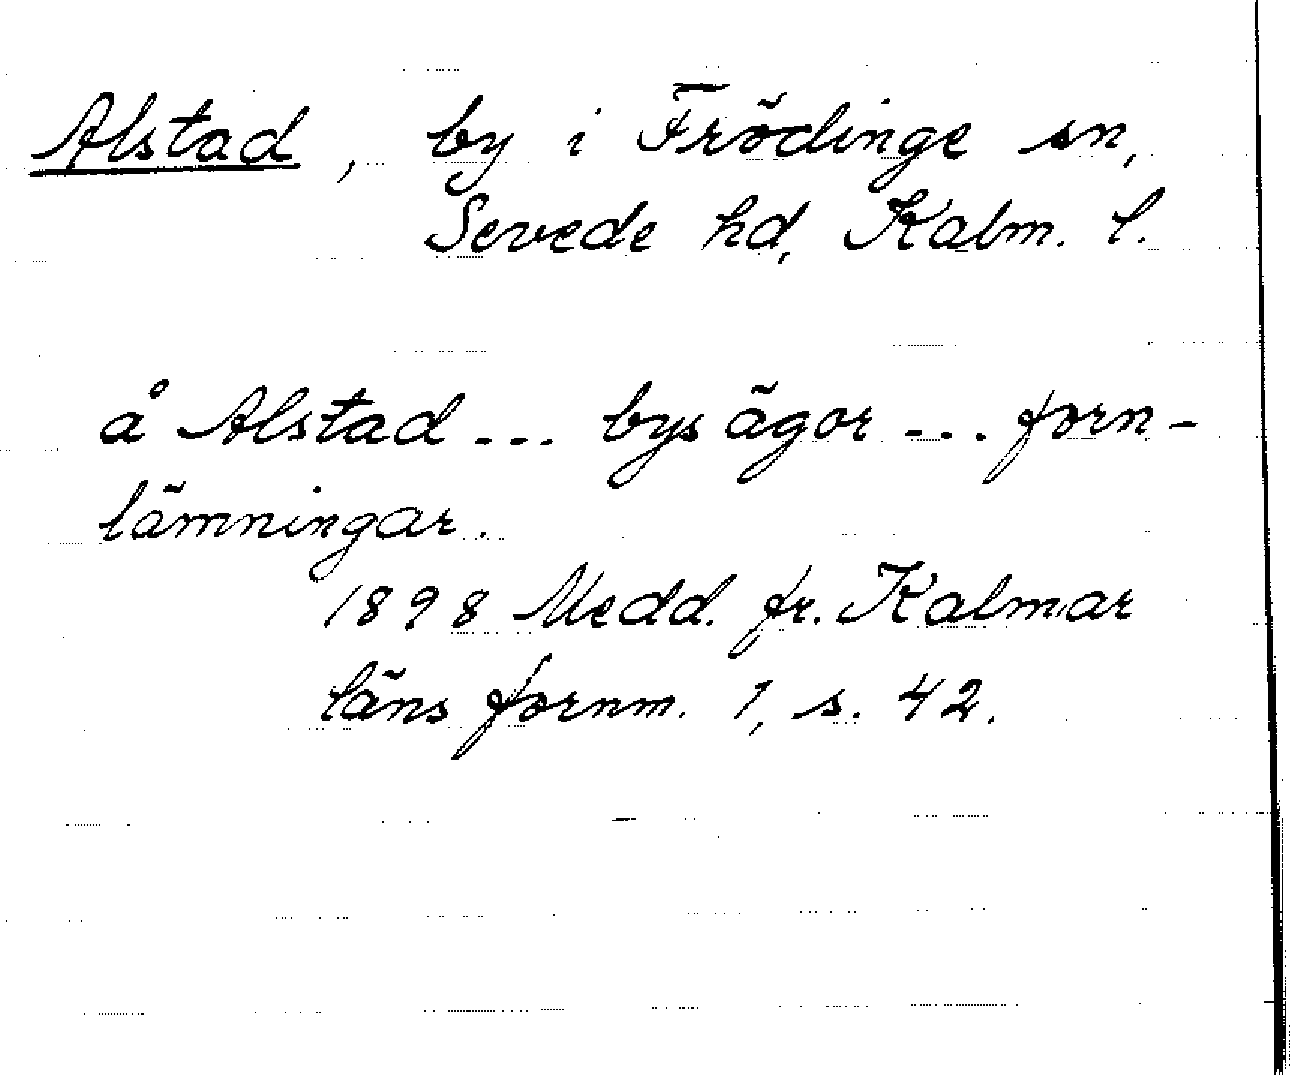 Alstad, by i Frödinge sn,
Sevede hd, Kalm. l.
å Alstad ... bys ägor ... forn-
lämningar.
1898 Medd. fr. Kalmar
läns fornm. 1, s. 42.